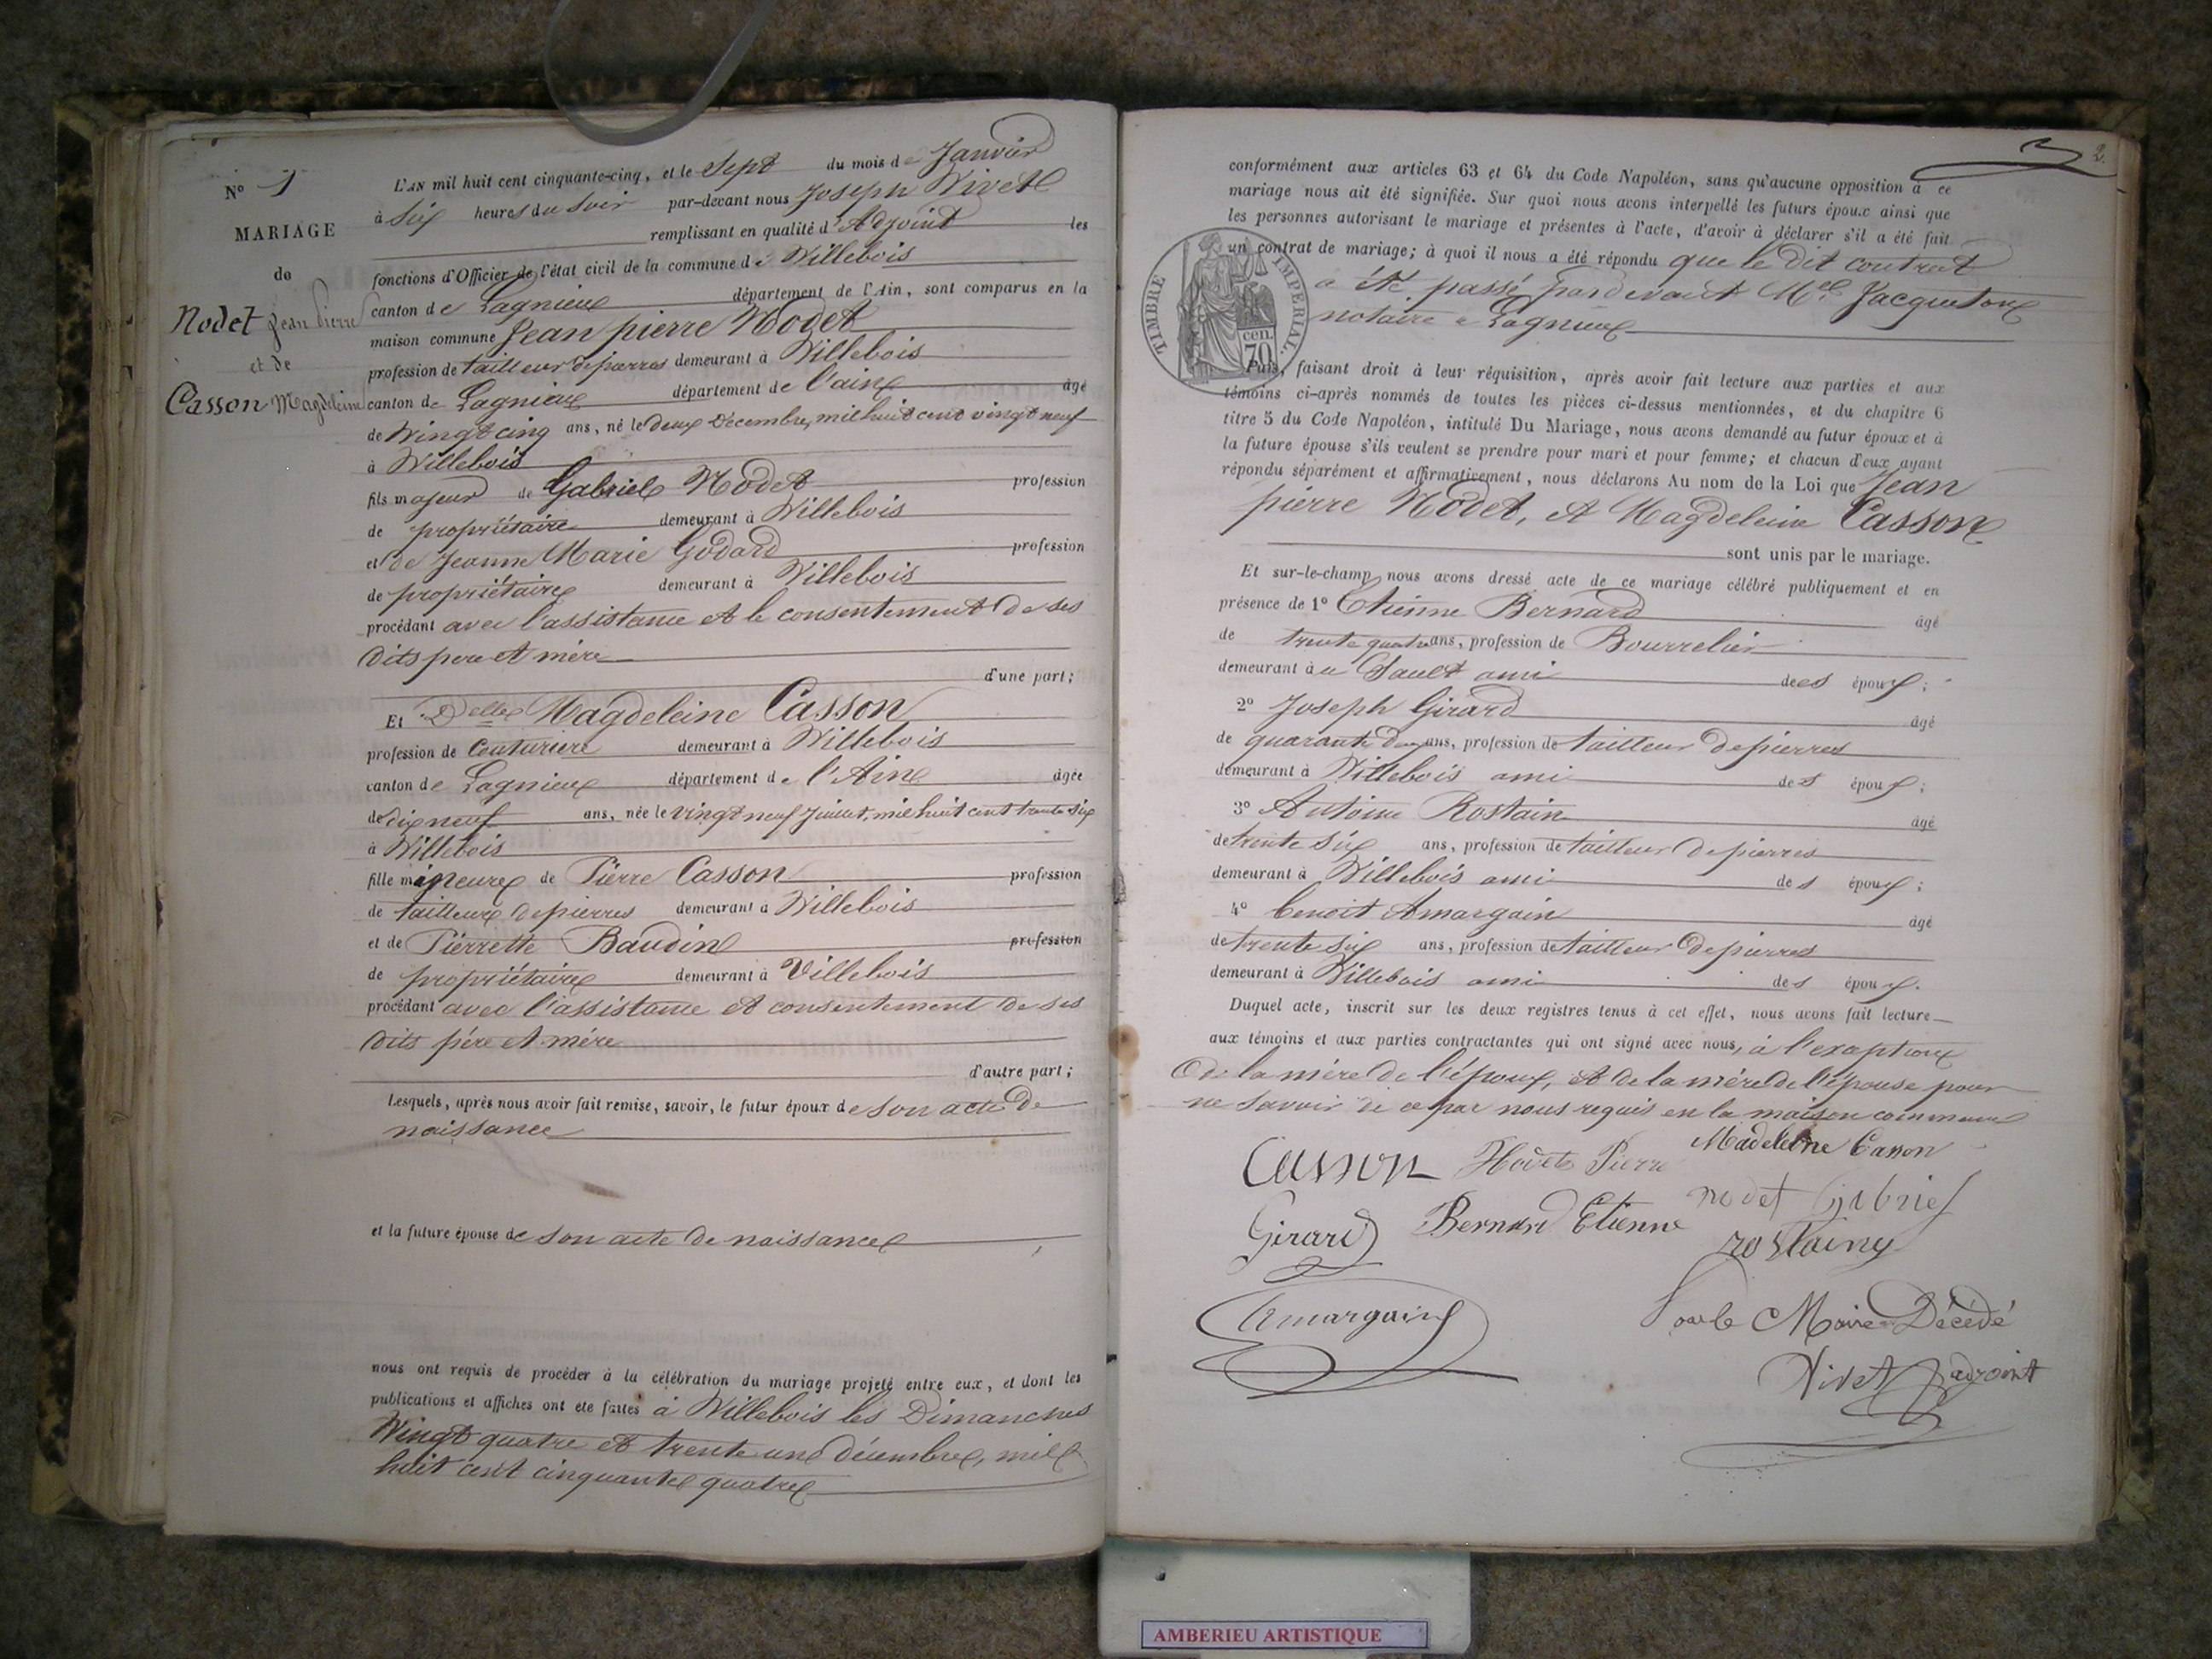 N° 1
MARIAGE
de
Nodet Jean Pierre
et de
Casson Magdeleine
L'AN mil huit cent cinquante-cinq, et le Sept du mois de Janvier
à Six heures du Soir par-devant nous Joseph Vivet
remplissant en qualité d'Adjoint les
fonctions d'Officier de l'état civil de la commune de Villebois
canton de Lagnieux département de l'Ain, sont comparus en la
maison commune Jean pierre Nodet
profession de tailleur de pierres demeurant à Villebois
canton de Lagnieux département de l'ain âgé
de Vingt cinq ans, né le deux Décembre, mil huit cent vingt neuf
à Villebois
fils majeur de Gabriel Nodet profession
de propriétaire demeurant à Villebois
et de Jeanne Marie Godard profession
de propriétaire demeurant à Villebois
procédant avec l'assistance et le consentement de ses
dits pere et mère
d'une part;
Et Delle Magdeleine Casson
profession de Couturière demeurant à Villebois
canton de Lagnieux département de l'Ain âgée
de dix neuf ans, née le vingt neuf Juillet, mil huit cent trente six
à Villebois
fille mineure de Pierre Casson profession
de tailleur de pierres demeurant à Villebois
et de Pierrette Baudin profession
de propriétaire demeurant à Villebois
procédant avec l'assistance et consentement de ses
dits père et mère
d'autre part;
Lesquels, après nous avoir fait remise, savoir, le futur époux de son acte de
naissance
et la future épouse de son acte de naissance
nous ont requis de procéder à la célébration du mariage projeté entre eux, et dont les
publications et affiches ont été faites à Villebois les Dimanches
Vingt quatre et trente un décembre, mil
huit cent cinquante quatre
2
conformément aux articles 63 et 64 du Code Napoléon, sans qu'aucune opposition à ce
mariage nous ait été signifiée. Sur quoi nous avons interpellé les futurs époux ainsi que
les personnes autorisant le mariage et présentes à l'acte, d'avoir à déclarer s'il a été fait
un contrat de mariage; à quoi il nous a été répondu que le dit contrat
a été passé pardevant Me Jacqueton
notaire a Lagnieux
TIMBRE IMPERIAL.
70 cen.
Puis, faisant droit à leur réquisition, après avoir fait lecture aux parties et aux
témoins ci-après nommés de toutes les pièces ci-dessus mentionnées, et du chapitre 6
titre 5 du Code Napoléon, intitulé Du Mariage, nous avons demandé au futur époux et à
la future épouse s'ils veulent se prendre pour mari et pour femme; et chacun d'eux ayant
répondu séparément et affirmativement, nous déclarons Au nom de la Loi que Jean
pierre Nodet, et Magdeleine Casson
sont unis par le mariage.
Et sur-le-champ nous avons dressé acte de ce mariage célébré publiquement et en
présence de 1° Etienne Bernard âgé
de trente quatre ans, profession de Bourrelier
demeurant à a Sault ami des époux;
2° Joseph Girard âgé
de quarante deux ans, profession de tailleur de pierres
demeurant à Villebois ami des époux;
3° Antoine Rostain âgé
de trente six ans, profession de tailleur de pierres
demeurant à Villebois ami des époux;
4° Benoit Amargain âgé
de trente six ans, profession de tailleur de pierres
demeurant à Villebois ami des époux.
Duquel acte, inscrit sur les deux registres tenus à cet effet, nous avons fait lecture
aux témoins et aux parties contractantes qui ont signé avec nous, à l'exeption
de la mère de l'époux, et de la mère de l'épouse pour
ne savoir de ce par nous requis en la maison commune
Casson Nodet Pierre Madeleine Casson
nodet Gabriel
Girard Bernard Etienne rostaing
Amargain
Pour le Maire Décédé
Vivet adjoint
AMBERIEU ARTISTIQUE